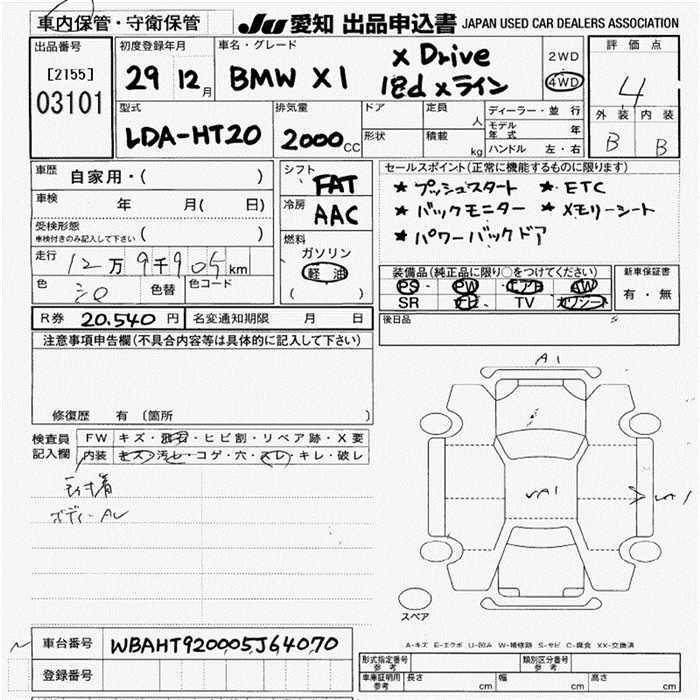 車内保管・守衛保管
JU 愛知 出品申込書 JAPAN USED CAR DEALERS ASSOCIATION
出品番号
[2155]
03101
初度登録年月
29 12月
車名・グレード
BMW X1
X Drive
18d xライン
2WD
4WD
評価点
4
外装 内装
B B
型式
LDA-HT20
排気量
2000cc
ドア
形状
定員 人
積載 kg
ディーラー・並行
モデル年式 年
ハンドル 左・右
車歴 自家用・( )
車検 年 月( 日)
受検形態
車検付きのみ記入して下さい ( )
走行 12万9千905km
色 色替 色コード
シフト
FAT
冷房
AAC
燃料
ガソリン
軽油
( )
セールスポイント(正常に機能するものに限ります)
★ プッシュスタート ★ ETC
★ バックモニター ★ メモリーシート
★ パワーバックドア
装備品(純正品に限り○をつけてください)
PS PW エアB AW
SR ナビ TV カワシート
新車保証書
有・無
R券 20.540円 名変通知期限 月 日
後日品
注意事項申告欄(不具合内容等は具体的に記入して下さい)
修復歴 有 (箇所 )
検査員記入欄
FW キズ・飛石・ヒビ割・リペア跡・X要
内装 キズ・汚レ・コゲ・穴・スレ・キレ・破レ
A1
A1
A1
スペア
A-キズ E-エクボ U-凹み W-補修跡 S-サビ C-腐食 XX-交換済
車台番号 WBAHT920005J64070
登録番号
形式指定番号 参考
類別区分番号 参考
車庫証明用 参考 長さ cm 幅 cm 高さ cm